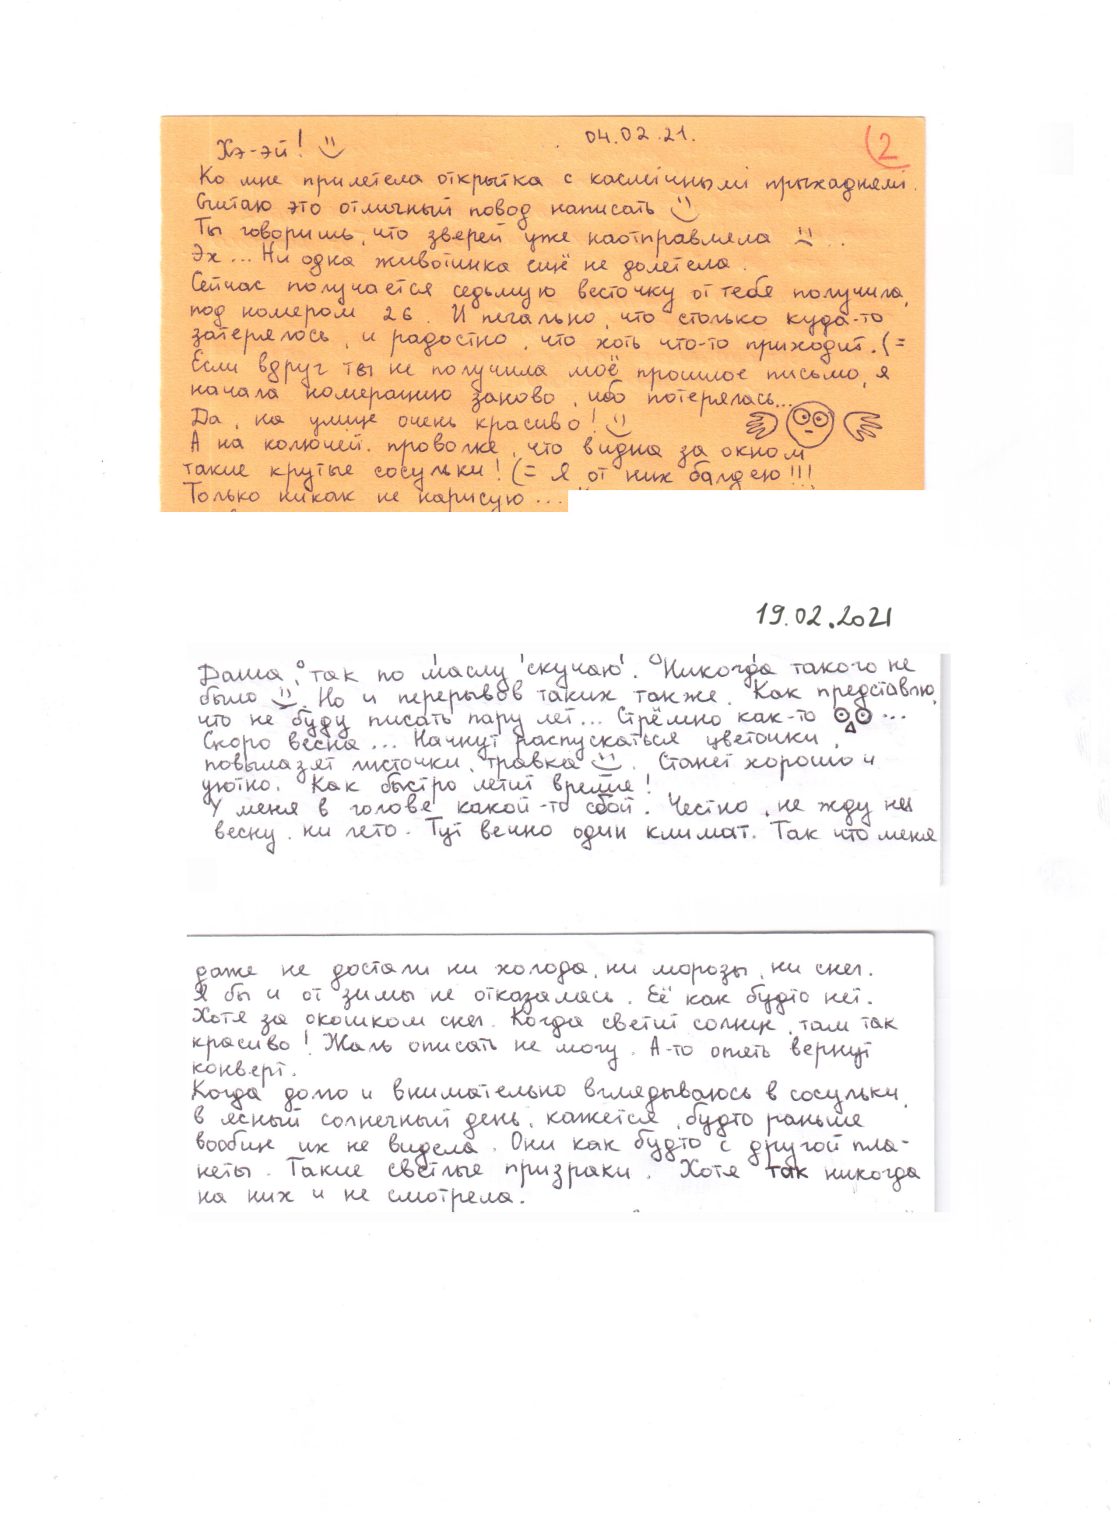 04.02.21.
2
Хэ-эй!
Ко мне прилетела открытка с касмічнымі прыхаднямі.
Считаю это отличный повод написать
Ты говоришь, что зверей уже наотправляла ...
Эх... Ни одна животинка ещё не долетела.
Сейчас получается седьмую весточку от тебя получила,
под номером 26. И печально, что столько куда-то
затерялось, и радостно, что хоть что-то приходит. (=
Если вдруг ты не получила моё прошлое письмо, я
начала номерацию заново, ибо потерялась...
Да, на улице очень красиво!
А на колючей проволке, что видна за окном
такие крутые сосульки! (= Я от них балдею!!!
Только никак не нарисую...
19.02.2021
Даша, так по маслу "скучаю". Никогда такого не
было. Но и перерывов таких также. Как представлю,
что не буду писать пару лет... Стрёмно как-то ...
Скоро весна... Начнут распускаться цветочки,
повылазят листочки, травка. Станет хорошо и
уютно. Как быстро летит время!
У меня в голове какой-то сбой. Честно, не жду ни
весну, ни лето. Тут вечно один климат. Так что меня
даже не достали ни холода, ни морозы, ни снег.
Я бы и от зимы не отказалась. Её как будто нет.
Хотя за окошком снег. Когда светит солнце, там так
красиво! Жаль описать не могу. А-то опять вернут
конверт.
Когда долго и внимательно вглядываюсь в сосульки,
в ясный солнечный день, кажется, будто раньше
вообще их не видела. Они как будто с другой пла-
неты. Такие светлые призраки. Хотя так никогда
на них и не смотрела.